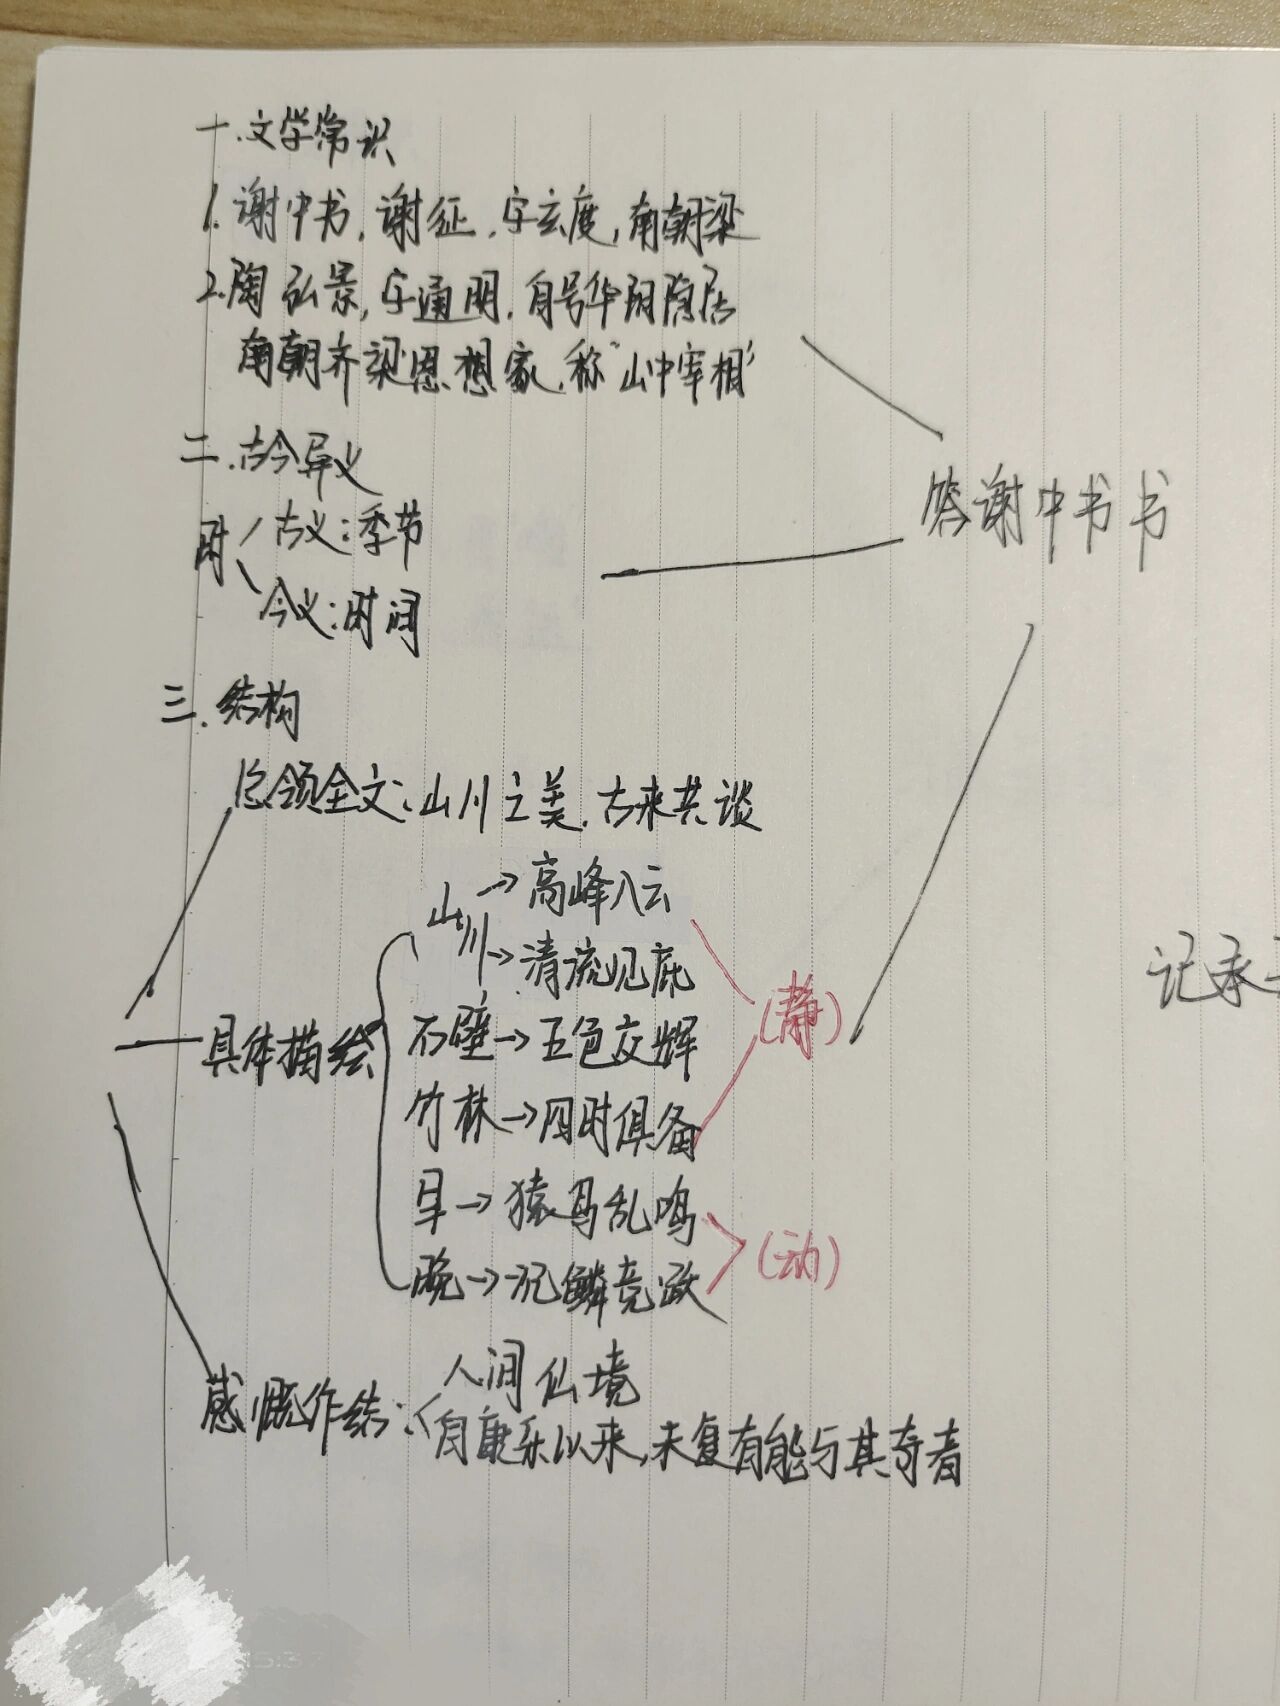 一.文学常识
1.谢中书,谢征.字玄度,南朝梁
2.陶弘景,字通明.自号华阳隐居
南朝齐梁思想家.称“山中宰相”
二.古今异义
时 古义:季节
今义:时间
答谢中书书
三.结构
总领全文:山川之美.古来共谈
山川→高峰入云
→清流见底
(静)
具体描绘
石壁→五色交辉
竹林→四时俱备
早→猿鸟乱鸣
(动)
晚→沉鳞竞跃
感慨作结:人间仙境
自康乐以来,未复有能与其奇者
记承
15:37